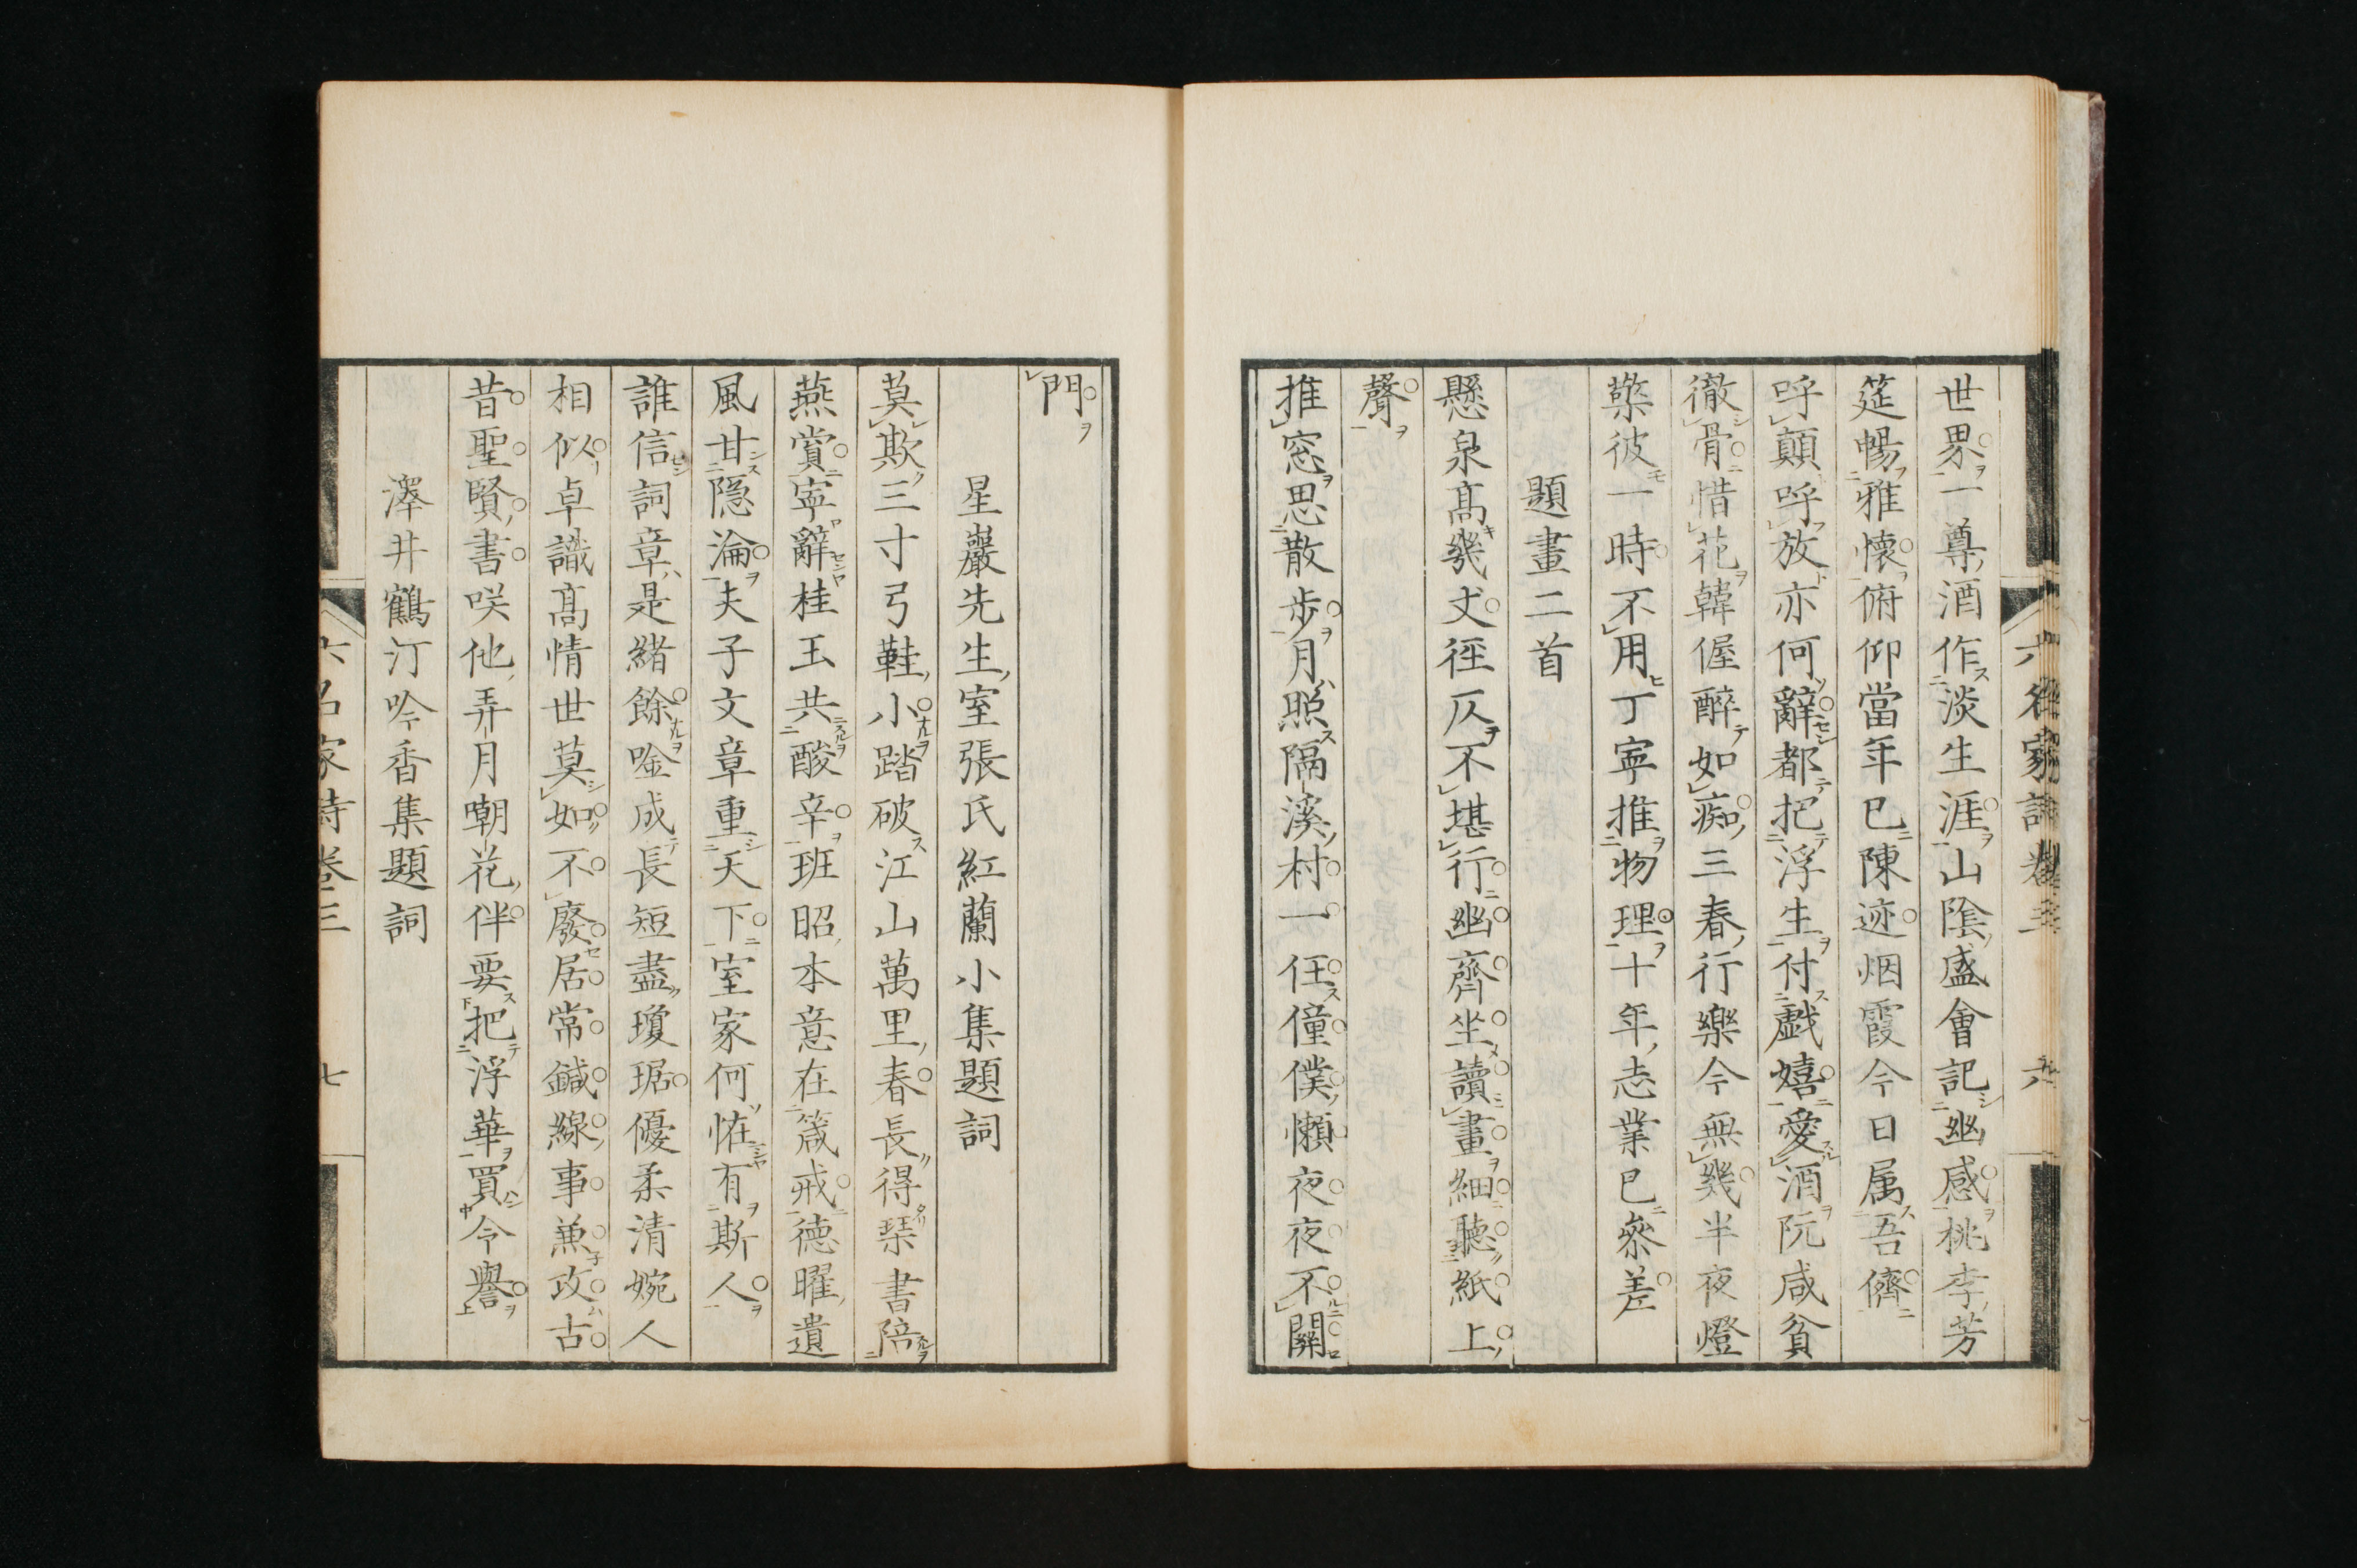 世界一尊酒作淡生涯山陰盛會記幽感桃李芳
筵暢雅懷俯仰當年已陳迹烟霞今日属吾儕
呼顛呼放亦何辭都把浮生付戯嬉愛酒阮咸貧
徹骨惜花韓偓醉如痴三春行樂今無幾半夜燈
檠彼一時不用丁寧推物理十年志業已參差
題畫二首
懸泉髙幾丈徑仄不堪行幽齋坐讀畫細聽紙上
聲
推窓思散歩月照隔溪村一任僮僕懶夜夜不關
門
星巖先生室張氏紅蘭小集題詞
莫欺三寸弓鞋小踏破江山萬里春長得琹書陪
燕賞寧辭桂玉共酸辛班昭本意在箴戒德曜遺
風甘隠淪夫子文章重天下室家何恠有斯人
誰信詞章是緒餘唫成長短盡瓊琚優柔清婉人
相似卓識髙情世莫如不廢居常鍼線事兼攻古
昔聖賢書咲他弄月嘲花伴要把浮華買今譽
澤井鶴汀吟香集題詞
六名家詩卷三
七